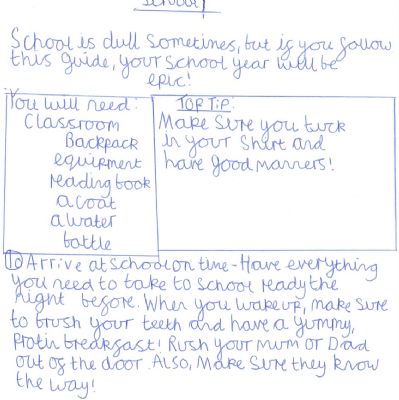 School!
School is dull sometimes, but if you follow
this guide, your school year will be
epic!
You will need:
Classroom
Backpack
equipment
reading book
a coat
a water
bottle
TOP TIP:
Make sure you tuck
in your shirt and
have good manners!
1) Arrive at school on time - Have everything
you need to take to school ready the
night before. When you wake up, make sure
to brush your teeth and have a yummy,
Protin breakfast! Rush your mum or Dad
out of the door. Also, Make sure they know
the way!